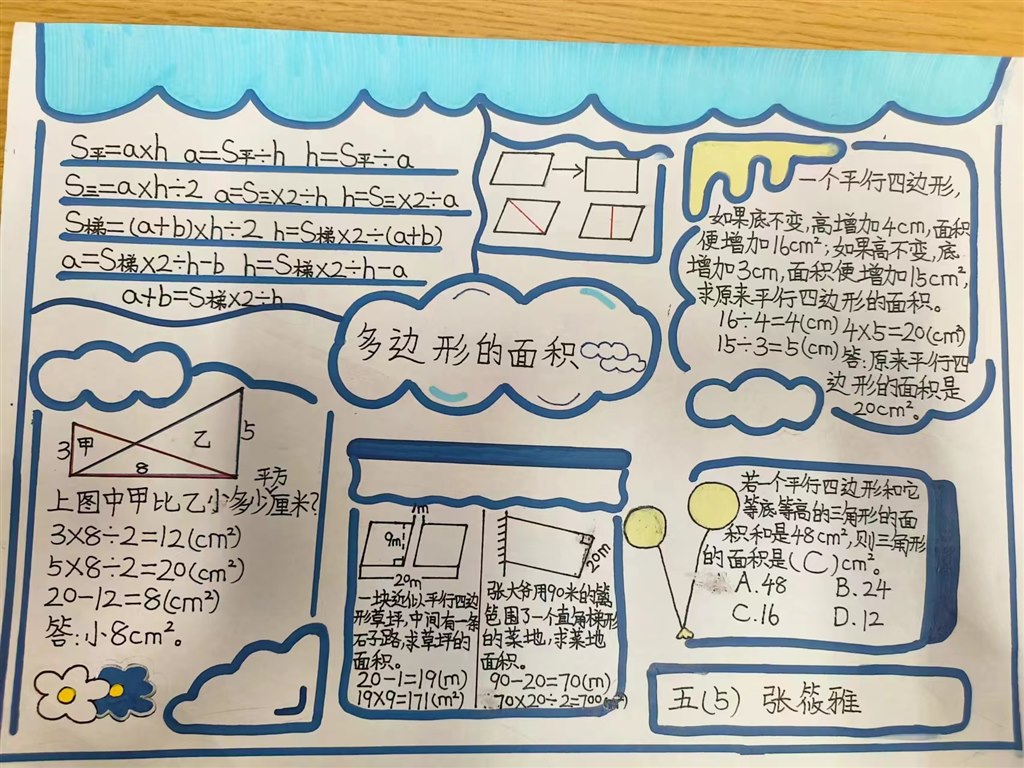 S平=a×h a=S平÷h h=S平÷a
S三=a×h÷2 a=S三×2÷h h=S三×2÷a
S梯=(a+b)×h÷2 h=S梯×2÷(a+b)
a=S梯×2÷h-b h=S梯×2÷h-a
a+b=S梯×2÷h
多边形的面积
一个平行四边形,
如果底不变,高增加4cm,面积
便增加16cm²;如果高不变,底
增加3cm,面积便增加15cm²,
求原来平行四边形的面积。
16÷4=4(cm) 4×5=20(cm²)
15÷3=5(cm) 答:原来平行四
边形的面积是
20cm²。
3 甲 乙 5
8
平方
上图中甲比乙小多少厘米?
3×8÷2=12(cm²)
5×8÷2=20(cm²)
20-12=8(cm²)
答:小8cm²。
1m
9m
20m
一块近似平行四边
形草坪,中间有一条
石子路,求草坪的
面积。
20-1=19(m)
19×9=171(m²)
20m
张大爷用90米的篱
笆围了一个直角梯形
的菜地,求菜地
面积。
90-20=70(m)
70×20÷2=700(m²)
若一个平行四边形和它
等底等高的三角形的面
积和是48cm²,则三角形
的面积是(C)cm²。
A.48 B.24
C.16 D.12
五(5) 张筱雅